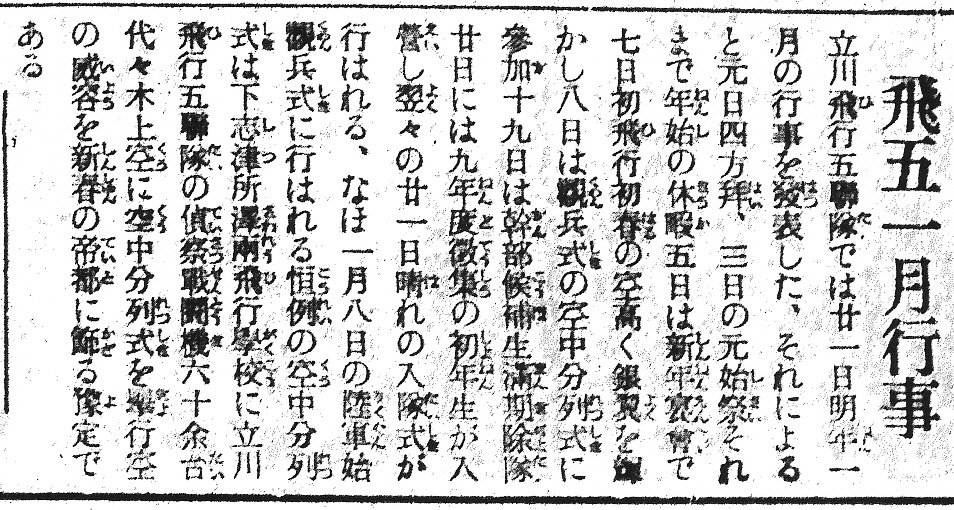 飛五一月行事
立川飛行五聯隊では廿一日明年一
月の行事を發表した、それによる
と元日四方拜、三日の元始祭それ
まで年始の休暇五日は新年宴會で
七日初飛行初春の空高く銀翼を輝
かし八日は觀兵式の空中分列式に
參加十九日は幹部候補生滿期除隊
廿日には九年度徵集の初年生が入
營し翌々の廿一日晴れの入隊式が
行はれる、なほ一月八日の陸軍始
觀兵式に行はれる恒例の空中分列
式は下志津所澤兩飛行學校に立川
飛行五聯隊の偵察戰鬪機六十余台
代々木上空に空中分列式を擧行空
の威容を新春の帝都に飾る豫定で
ある